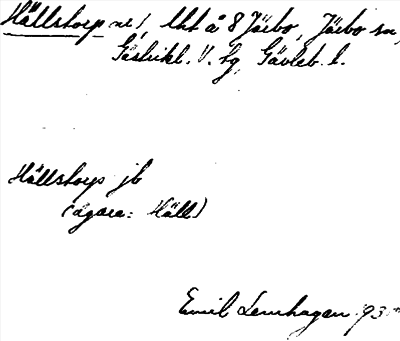 Hällstorp nr 1, lht å 8 Järbo, Järbo sn,
Gästrikl. V. tg, Gävleb. l.
Hällstorps jb
(ägare: Häll)
Emil Lenhagen 193